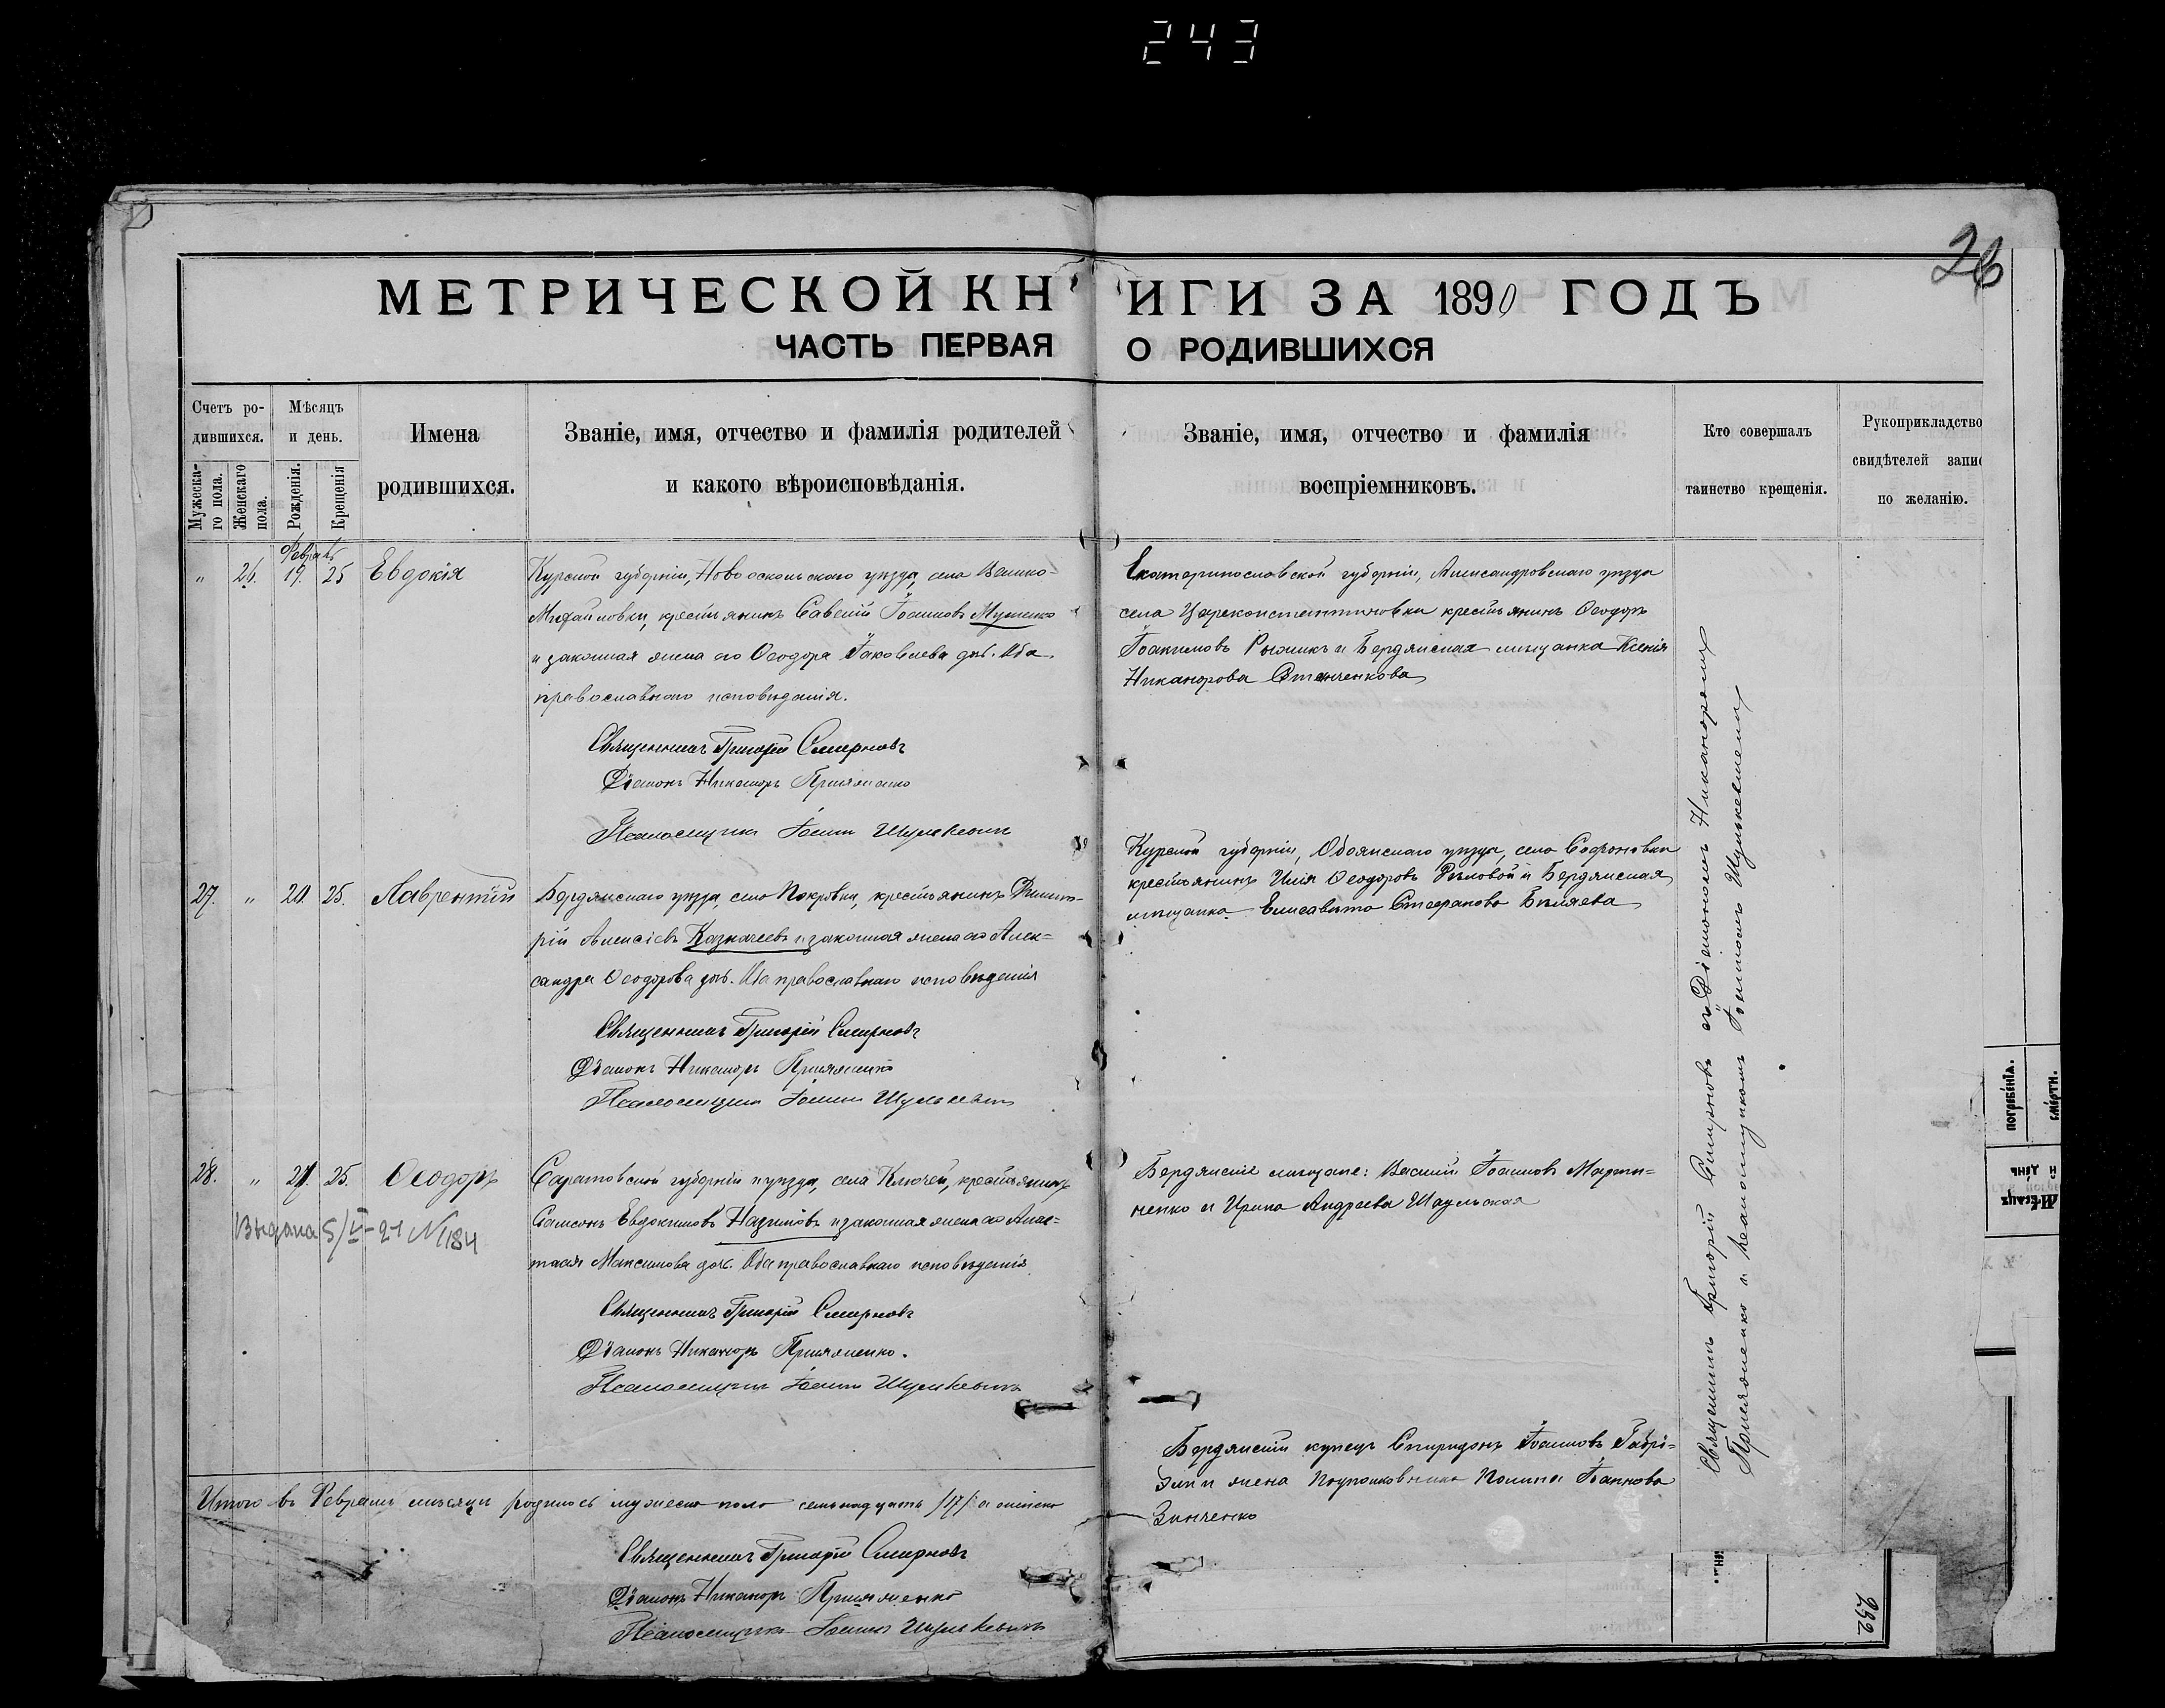 243
26
МЕТРИЧЕСКОЙ КНИГИ ЗА 1890 ГОДЪ
ЧАСТЬ ПЕРВАЯ О РОДИВШИХСЯ
Счетъ ро-
дившихся.
Мужеска-
го пола.
Женскаго
пола.
Мѣсяцъ
и день.
Рожденія.
Крещенія
Имена
родившихся.
Званіе, имя, отчество и фамилія родителей
и какого вѣроисповѣданія.
Званіе, имя, отчество и фамилія
воспріемниковъ.
Кто совершалъ
таинство крещенія.
Рукоприкладство
свидѣтелей запис
по желанію.
Февраль
„ 26. 19. 25 Евдокія
Курской губерніи, Новооскольскаго уѣзда, села Велико-
Михайловки, крестьянинъ Савелій Іоанновъ
и законная жена его Ѳеодора Іаковлева доч. Оба
православнаго исповѣданія.
Священникъ Григорій Смирновъ
Діаконъ Никаноръ
Псаломщикъ Іоаннъ Шулькевичъ
Екатеринославской губерніи, Александровскаго уѣзда
села Цареконстантиновки крестьянинъ Ѳеодоръ
Іоакимовъ Рыжикъ и Бердянская мѣщанка Ксенія
Никанорова Стенченкова
27. „ 20. 25. Лаврентій
Бердянскаго уѣзда, села Покровки, крестьянинъ Димит-
рій Алексіевъ Казначеевъ и законная жена его Алек-
сандра Ѳеодорова доч. Оба православнаго исповѣданія
Священникъ Григорій Смирновъ
Діаконъ Никаноръ
Псаломщикъ Іоаннъ Шулькевичъ
Курской губерніи, Обоянскаго уѣзда, села Софроновки
крестьянинъ Илія Ѳеодоровъ и Бердянская
мѣщанка Елисавета Стефанова Бѣляева
28. „ 21. 25. Ѳеодоръ
Выдана 5/VI-21 N 184
Саратовской губерніи и уѣзда, села Ключей, крестьянинъ
Самсонъ Евдокимовъ Назимовъ и законная жена его Анас-
тасія Максимова доч. Оба православнаго исповѣданія
Священникъ Григорій Смирновъ
Діаконъ Никаноръ
Псаломщикъ Іоаннъ Шулькевичъ
Бердянскіе мѣщане: Василій Іоанновъ Марты-
ненко и Ирина Андреева Шаульская
Священникъ Григорій Смирновъ съ Діакономъ Никаноромъ
и псаломщикомъ Іоанномъ Шулькевичемъ
Итого въ Февралѣ мѣсяцѣ родилось мужеска пола семьнадцать /17/ а женска
Священникъ Григорій Смирновъ
Діаконъ Никаноръ
Псаломщикъ Іоаннъ Шулькевичъ
Бердянскій купецъ Спиридонъ Іоанновъ
и жена Полина Іоаннова
Зинченко
погребенія.
смерти.
Мѣсяцъ
и день
232